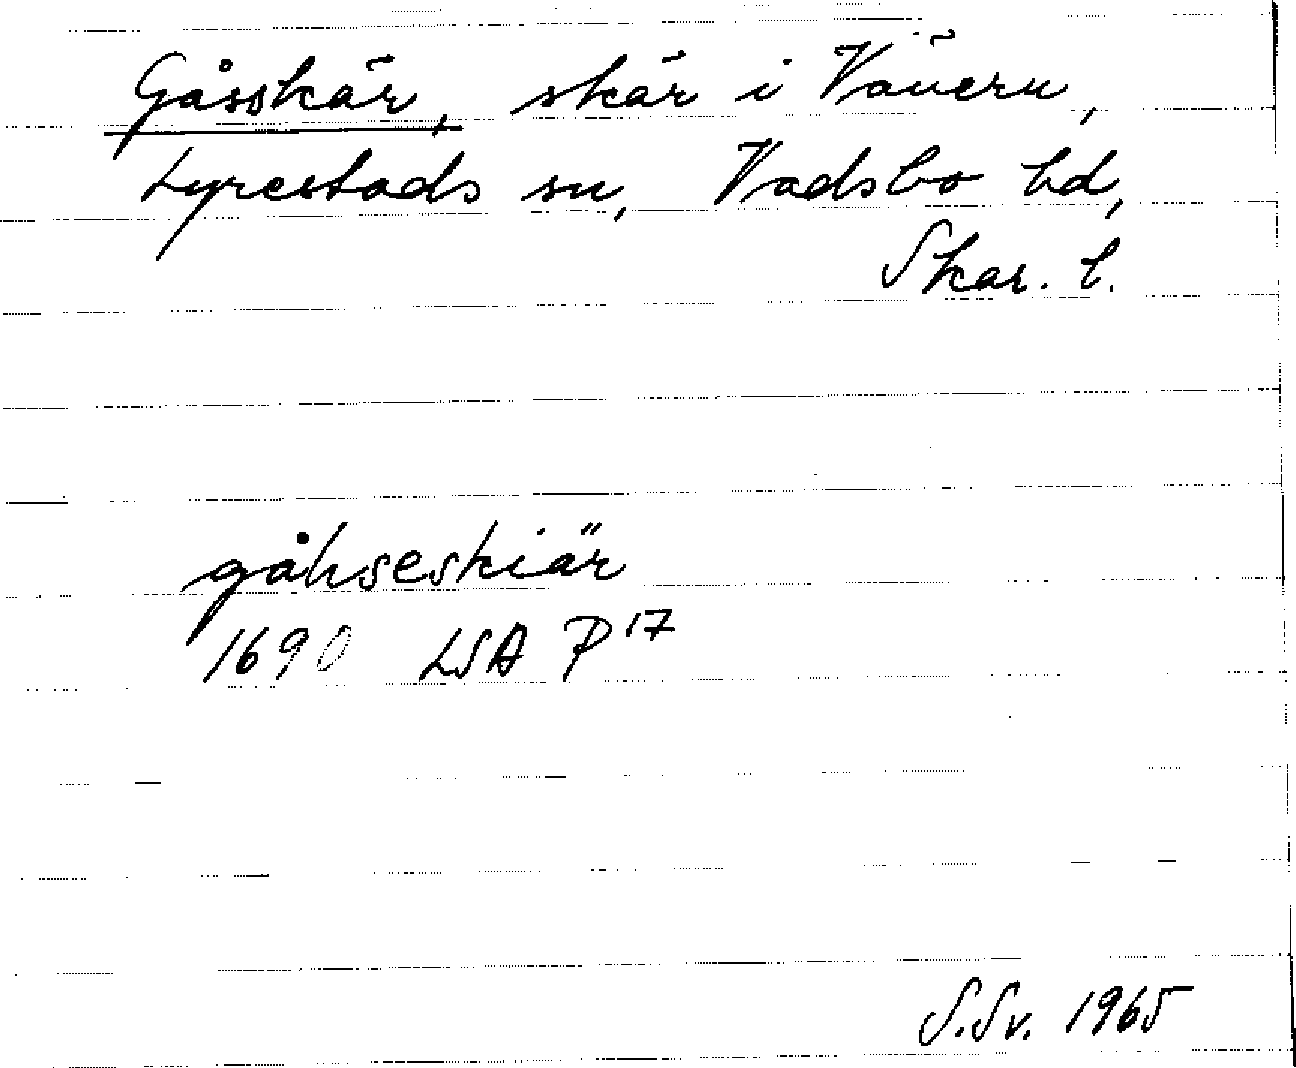 Gåsskär, skär i Vänern,
Lyrestads sn, Vadsbo hd,
Skar. l.
gåhseskiär
1690 LSA P 17
S.Sv. 1965